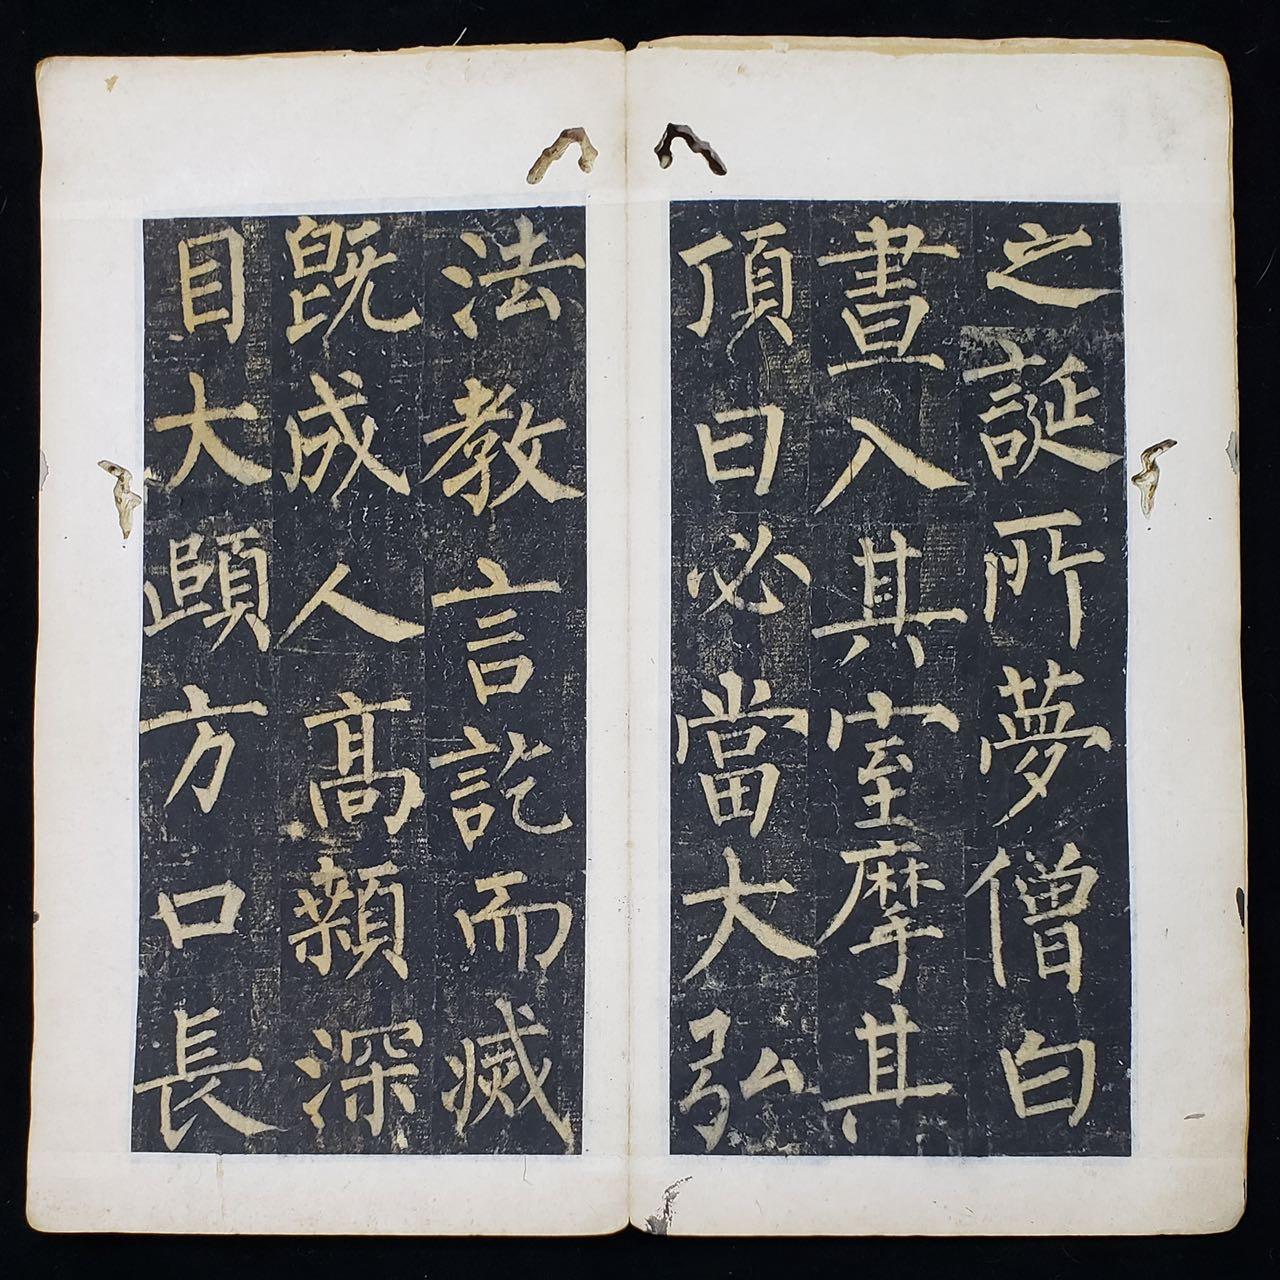 之誕所夢僧白
晝入其室摩其
頂曰必當大弘
法教言訖而滅
既成人高顙深
目大頤方口長